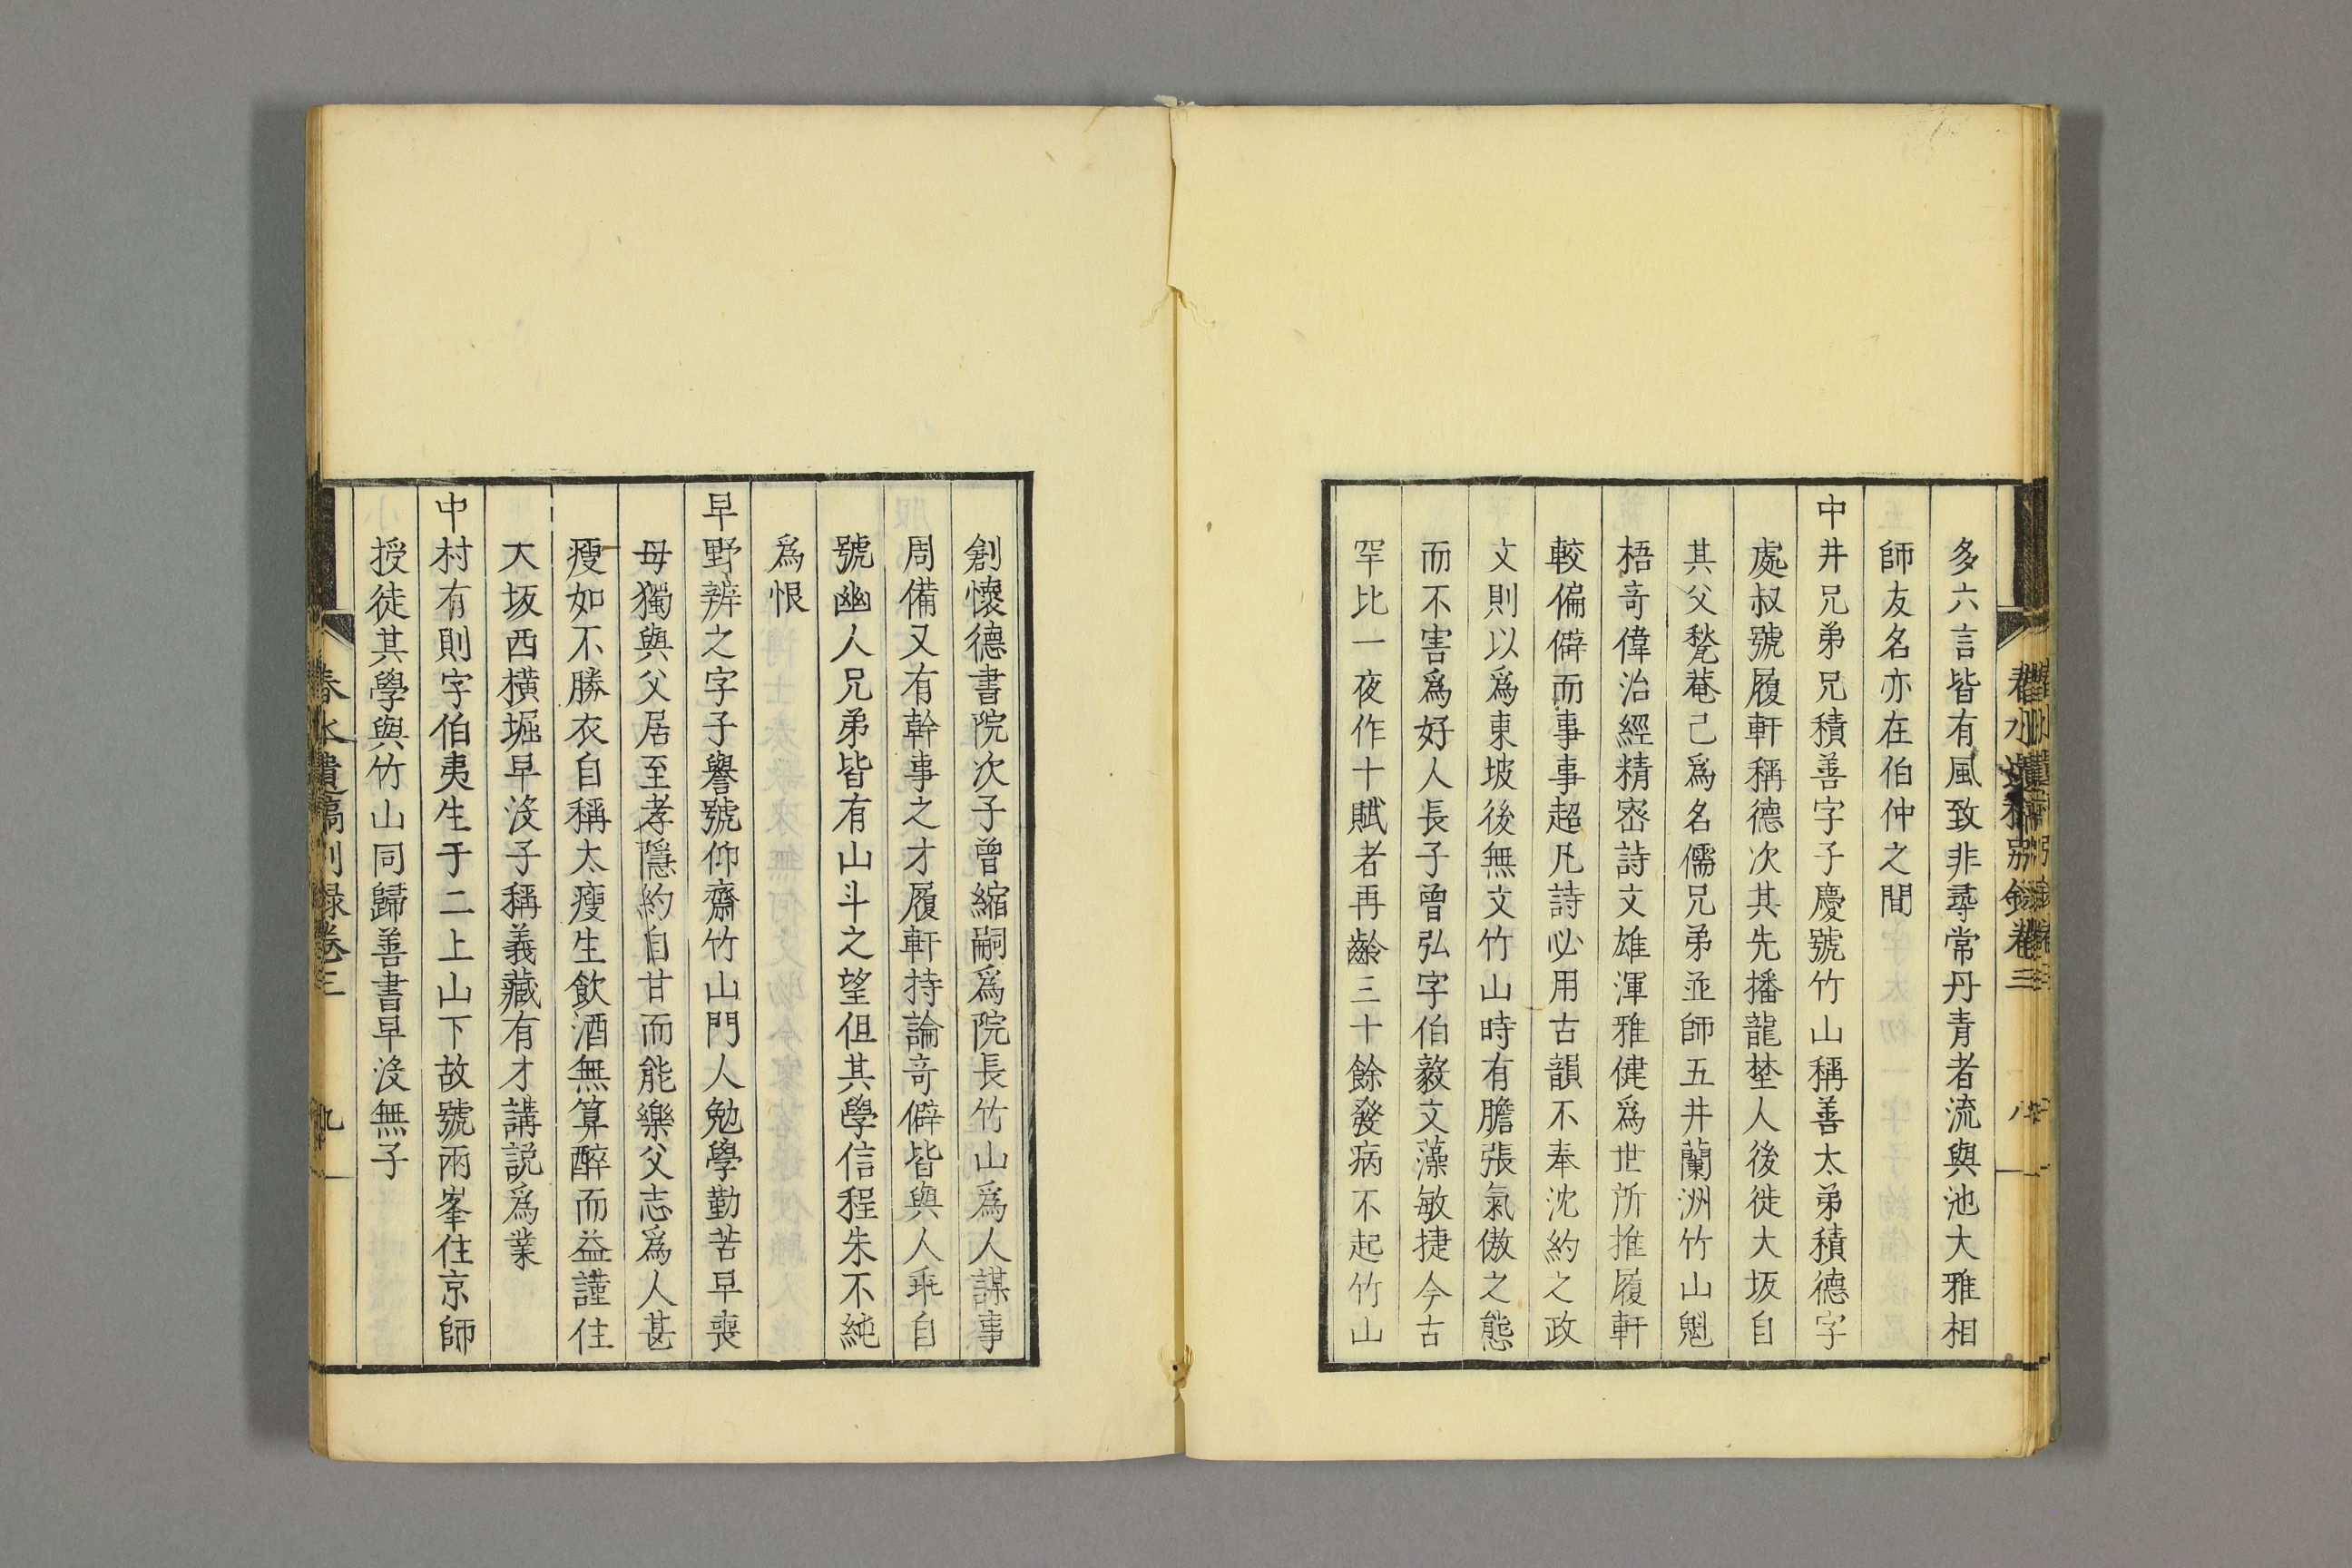 多六言皆有風致非尋常丹青者流與池大雅相
師友名亦在伯仲之間
中井兄弟兄積善字子慶號竹山稱善太弟積德字
處叔號履軒稱德次其先播龍埜人後徙大坂自
其父甃菴已爲名儒兄弟並師五井蘭洲竹山魁
梧奇偉治經精密詩文雄渾雅健爲世所推履軒
較偏僻而事事超凡詩必用古韻不奉沈約之政
文則以爲東坡後無文竹山時有膽張氣傲之態
而不害爲好人長子曾弘字伯毅文藻敏捷今古
罕比一夜作十賦者再齡三十餘發病不起竹山
創懷德書院次子曾縮嗣爲院長竹山爲人謀事
周備又有幹事之才履軒持論奇僻皆與人乖自
號幽人兄弟皆有山斗之望但其學信程朱不純
爲恨
早野辨之字子譽號仰齋竹山門人勉學勤苦早喪
母獨與父居至孝隱約自甘而能樂父志爲人甚
瘦如不勝衣自稱太瘦生飲酒無算醉而益謹住
大坂西橫堀早沒子稱義藏有才講説爲業
中村有則字伯夷生于二上山下故號兩峯住京師
授徒其學與竹山同歸善書早沒無子
春水遺稿別録卷三
九
春水遺稿別録卷三
八